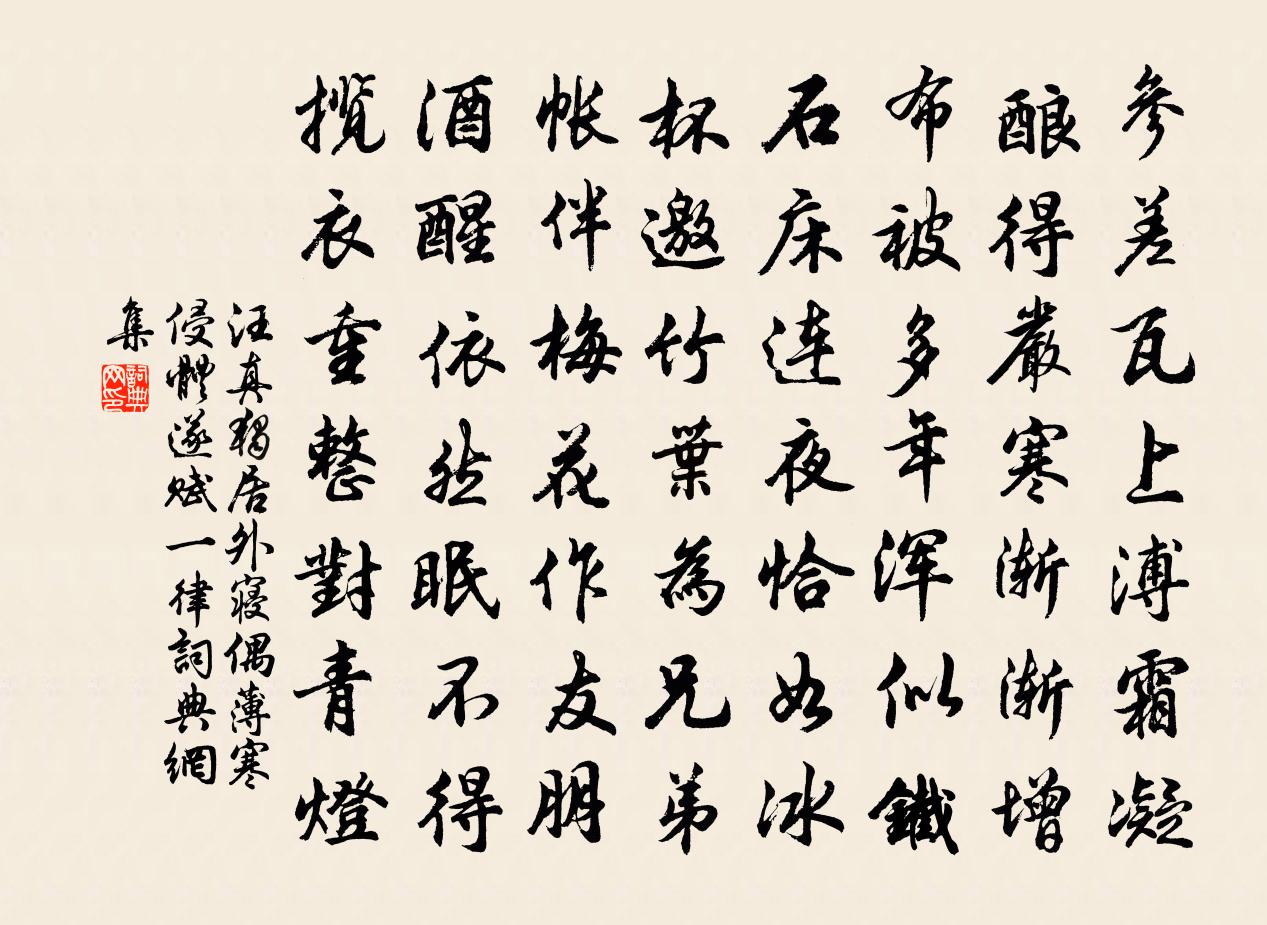 參差瓦上溥霜凝
酿得嚴寒渐渐增
布被多年浑似鐵
石床连夜恰如冰
杯邀竹葉為兄弟
帐伴梅花作友朋
酒醒依然眠不得
揽衣重整對青燈
汪真獨居外寝偶薄寒
侵體遂赋一律詞典網
集
詞典
网印